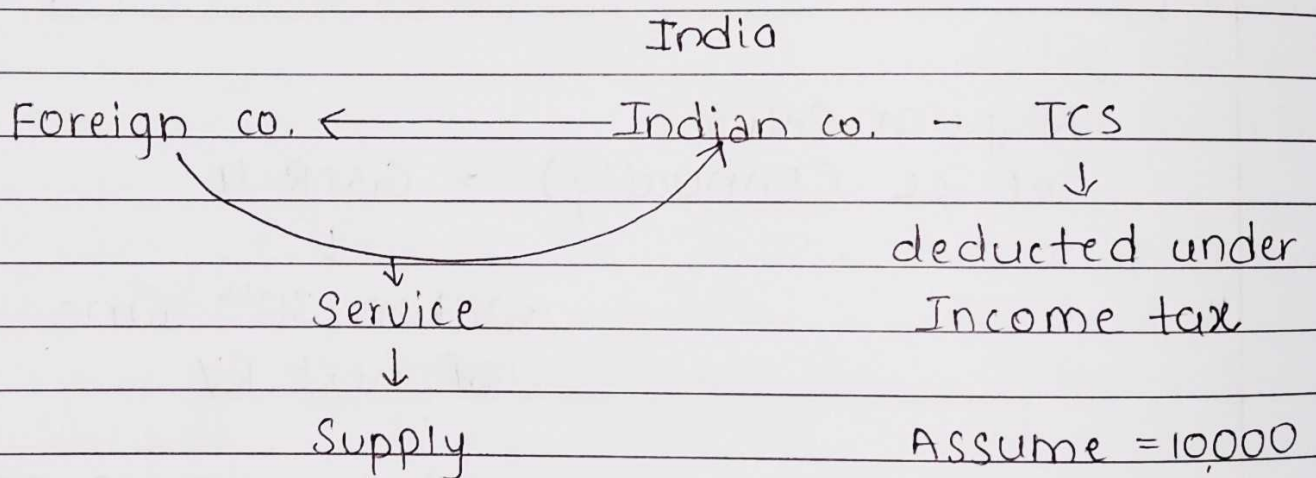 India
Foreign co. ← Indian co. - TCS
↓
deducted under
Service Income tax
↓
Supply Assume = 10,000